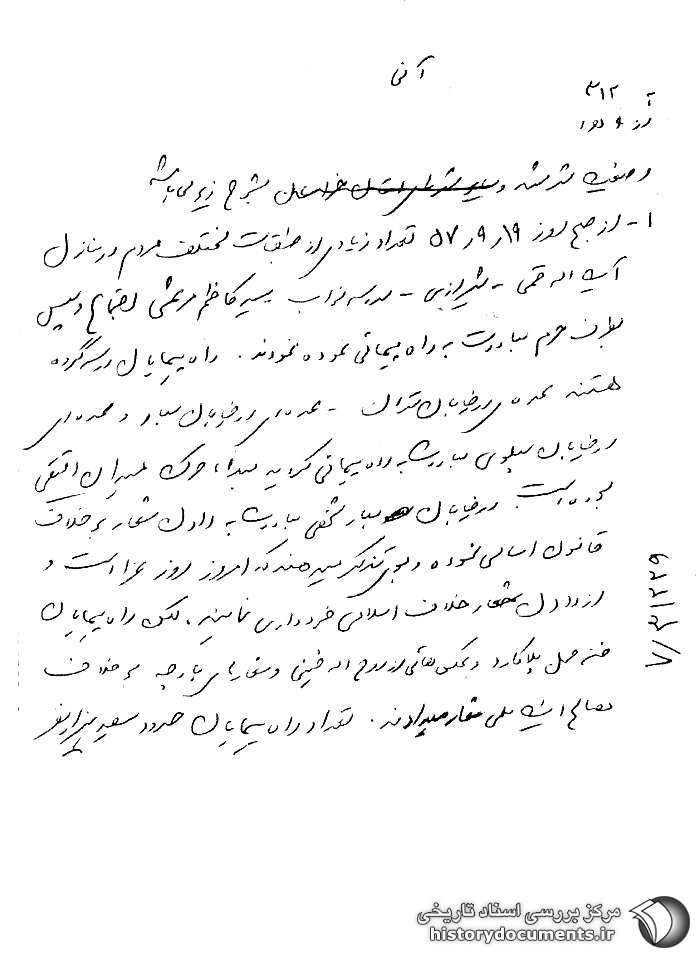 آنی
به ۳۱۲
از ۹ ه‍ ۱
وضعیت شهر مشهد و سایر شهرهای استان خراسان بشرح زیر می‌باشد
۱- از صبح روز ۱۹ر۹ر۵۷ تعداد زیادی از طبقات مختلف مردم در منازل
آیت اله قمی - شیرازی - مدرسه نواب سید کاظم مرعشی اجتماع و سپس
بطرف حرم مبادرت به راه پیمائی نموده نمودند. راه پیمایان در سه گروه
هستند عده‌ی در خیابان تهران - عده‌ای در خیابان و عده‌ای
در خیابان پهلوی مبادرت به راه پیمائی کرده مبداء حرکت میدان
بوده است. در خیابان مبادرت به دادن شعار بر خلاف
قانون اساسی نموده و تذکر میدهند که امروز روز عزا است و
از دادن شعار خلاف اسلامی خودداری نمایند، لکن راه پیمایان
ضمن حمل پلاکارد و عکس‌هائی از روح اله خمینی و شعارهای پارچه بر خلاف
مصالح امنیت ملی شعار میدادند. تعداد راه پیمایان حدود سیصد هزار نفر
۷/۳۱۲۲۹
مرکز بررسی اسناد تاریخی
historydocuments.ir